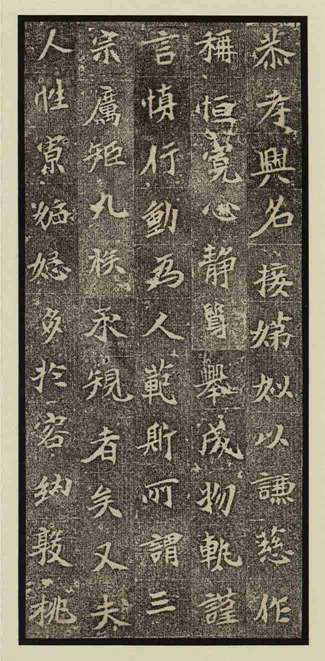 恭孝興名接娣姒以謙慈作
稱恒寬心静質舉成物軌謹
言慎行動為人範斯所謂三
宗厲矩九族承規者矣又夫
人性寡妬忌多於容納敦桃